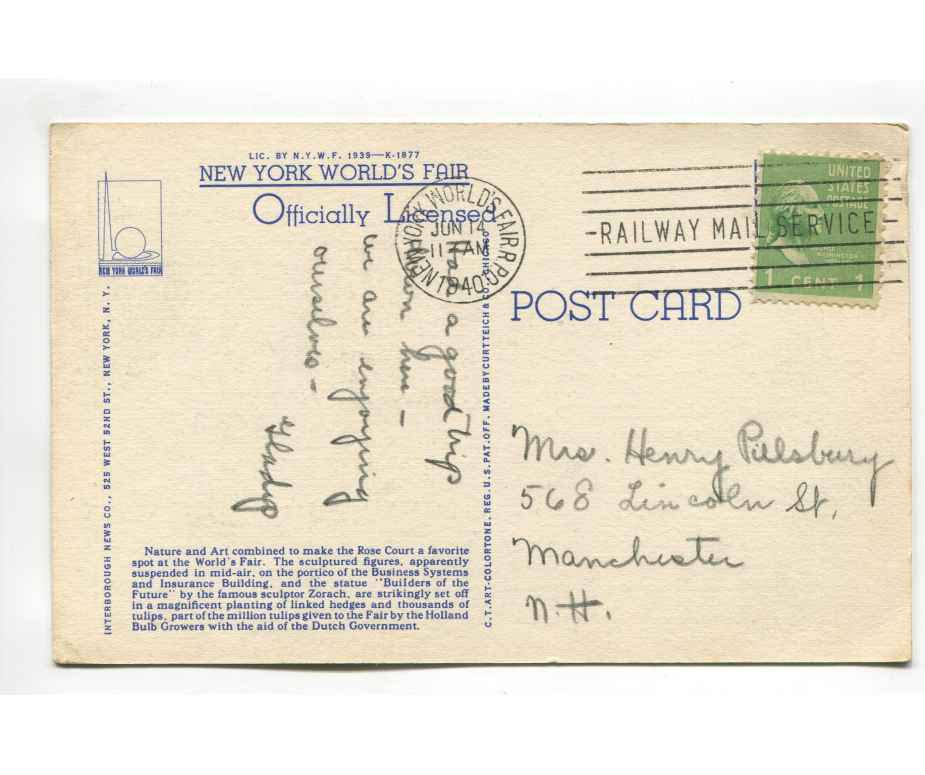 LIC. BY N.Y.W.F. 1939—K-1877
NEW YORK WORLD'S FAIR
Officially Licensed
NEW YORK WORLD'S FAIR
INTERBOROUGH NEWS CO., 525 WEST 52ND ST., NEW YORK, N. Y.
NEW YORK WORLD'S FAIR R.P.O.
JUN 14
11 AM
1940
RAILWAY MAIL SERVICE
UNITED
STATES
POSTAGE
WASHINGTON
1 CENT 1
POST CARD
Had a good trip
down here –
we are enjoying
ourselves –
Gladys
C.T. ART-COLORTONE. REG. U.S. PAT. OFF. MADE BY CURT TEICH & CO. CHICAGO
Mrs. Henry Pillsbury
568 Lincoln St,
Manchester
N.H.
Nature and Art combined to make the Rose Court a favorite
spot at the World's Fair. The sculptured figures, apparently
suspended in mid-air, on the portico of the Business Systems
and Insurance Building, and the statue "Builders of the
Future" by the famous sculptor Zorach, are strikingly set off
in a magnificent planting of linked hedges and thousands of
tulips, part of the million tulips given to the Fair by the Holland
Bulb Growers with the aid of the Dutch Government.